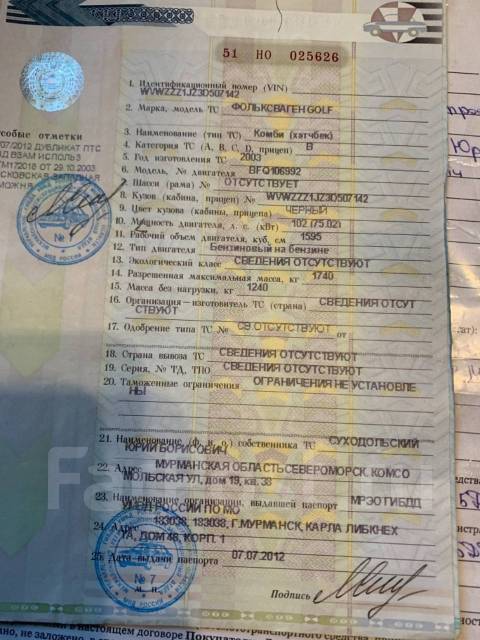 51 НО 025626
1. Идентификационный номер (VIN)
WVWZZZ1JZ3D507142
2. Марка, модель ТС ФОЛЬКСВАГЕН GOLF
3. Наименование (тип ТС) Комби (хэтчбек)
4. Категория ТС (А, В, С, D, прицеп) В
5. Год изготовления ТС 2003
6. Модель, № двигателя BFQ106992
7. Шасси (рама) № ОТСУТСТВУЕТ
8. Кузов (кабина, прицеп) № WVWZZZ1JZ3D507142
9. Цвет кузова (кабины, прицепа) ЧЕРНЫЙ
10. Мощность двигателя, л. с. (кВт) 102 (75.02)
11. Рабочий объем двигателя, куб. см 1595
12. Тип двигателя Бензиновый на бензине
13. Экологический класс СВЕДЕНИЯ ОТСУТСТВУЮТ
14. Разрешенная максимальная масса, кг 1740
15. Масса без нагрузки, кг 1240
16. Организация—изготовитель ТС (страна) СВЕДЕНИЯ ОТСУТ
СТВУЮТ
17. Одобрение типа ТС № СВ ОТСУТСТВУЮТ от
18. Страна вывоза ТС СВЕДЕНИЯ ОТСУТСТВУЮТ
19. Серия, № ТД, ТПО СВЕДЕНИЯ ОТСУТСТВУЮТ
20. Таможенные ограничения ОГРАНИЧЕНИЯ НЕ УСТАНОВЛЕ
НЫ
21. Наименование (ф. и. о.) собственника ТС СУХОДОЛЬСКИЙ
ЮРИЙ БОРИСОВИЧ
22. Адрес МУРМАНСКАЯ ОБЛАСТЬСЕВЕРОМОРСК, КОМСО
МОЛЬСКАЯ УЛ, дом 19, кв. 38
23. Наименование организации, выдавшей паспорт МРЭО ГИБДД
УМВД РОССИИ ПО МО
24. Адрес 183038, 183038, Г.МУРМАНСК, КАРЛА ЛИБКНЕХ
ТА, ДОМ 48, КОРП. 1
25. Дата выдачи паспорта 07.07.2012
Подпись
М. П.
№ 7
особые отметки
/07/2012 ДУБЛИКАТ ПТС
Д ВЗАМ ИСПОЛЬЗ
ТМ172018 ОТ 29.10.2003
СКОВСКАЯ
МОЖНЯ
№ 7
дат):
в настоящем договоре Покупат
но, не заложено, в